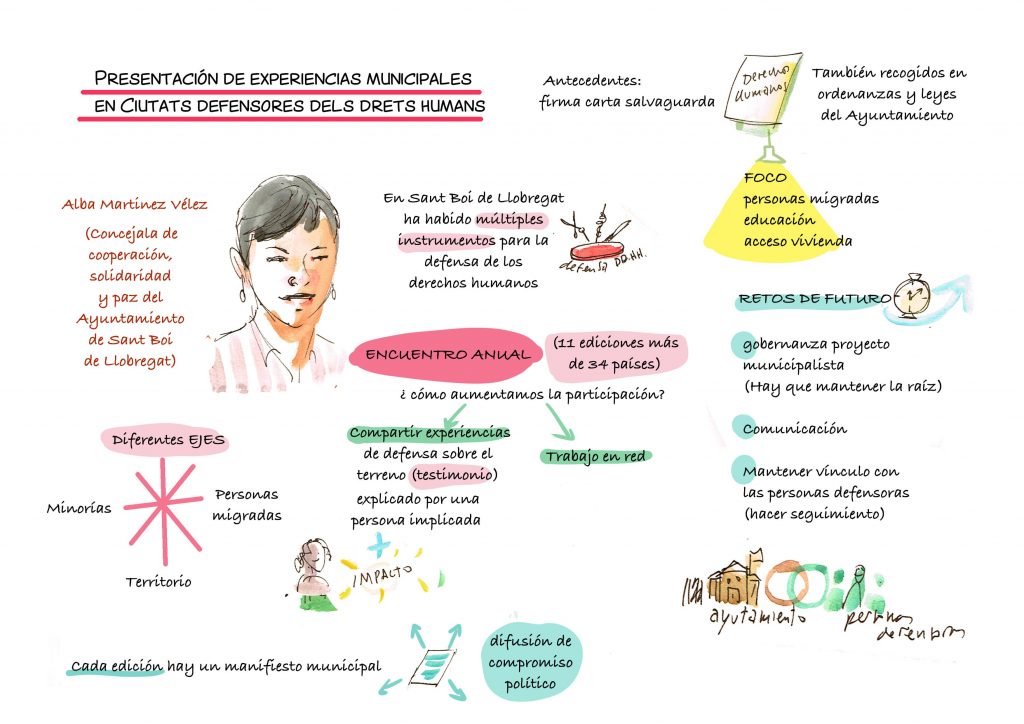 PRESENTACIÓN DE EXPERIENCIAS MUNICIPALES
EN CIUTATS DEFENSORES DELS DRETS HUMANS
Antecedentes:
firma carta salvaguarda
Derechos
Humanos
También recogidos en
ordenanzas y leyes
del Ayuntamiento
FOCO
personas migradas
educación
acceso vivienda
Alba Martínez Vélez
(Concejala de
cooperación,
solidaridad
y paz del
Ayuntamiento
de Sant Boi
de Llobregat)
En Sant Boi de Llobregat
ha habido múltiples
instrumentos para la
defensa de los
derechos humanos
defensa DD.HH.
ENCUENTRO ANUAL
(11 ediciones más
de 34 países)
¿ cómo aumentamos la participación?
Compartir experiencias
de defensa sobre el
terreno (testimonio)
explicado por una
persona implicada
Trabajo en red
IMPACTO
Diferentes EJES
Minorías
Personas
migradas
Territorio
RETOS DE FUTURO
gobernanza proyecto
municipalista
(Hay que mantener la raíz)
Comunicación
Mantener vínculo con
las personas defensoras
(hacer seguimiento)
ayutamiento
personas
defensoras
Cada edición hay un manifiesto municipal
difusión de
compromiso
político